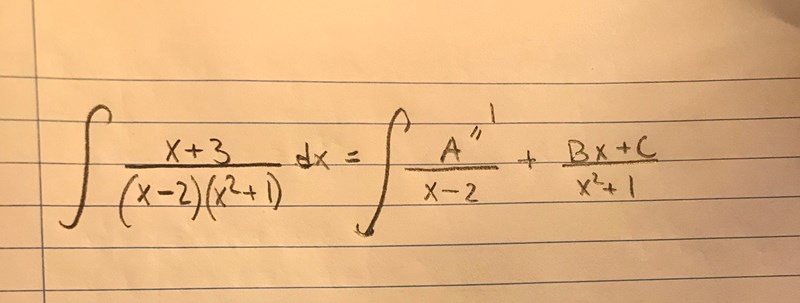 ∫ (x+3)/((x-2)(x²+1)) dx = ∫ A"1/(x-2) + (Bx+C)/(x²+1)